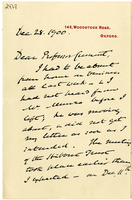 143, WOODSTOCK ROAD,
OXFORD.
Dec 28. 1900.
Dear Professor
I had to be absent
from home on business
all last week & I
had not heard from
before I
left; he was moving
about, & did not get
my letter as soon as I
intended. The meeting
of the Hibbert Trust
took place earlier than
I expected – on Dec. 11th